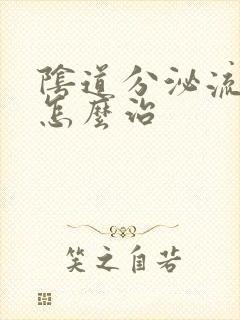 陰道分泌流
怎麼治
笑之自若